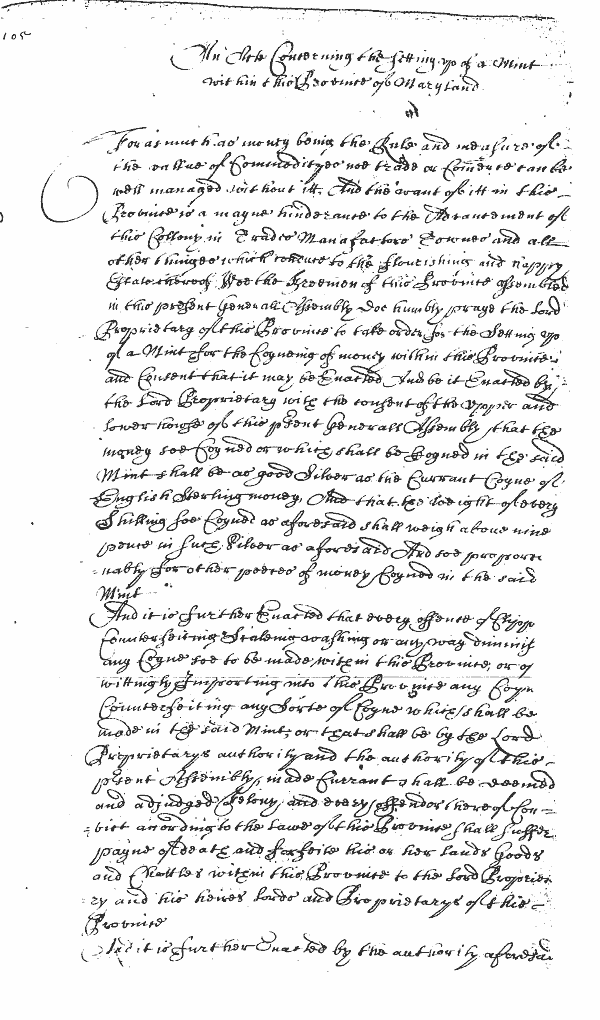 105
An Acte Concerning the setting up of a Mint
within this Province of Maryland
For as much as money being the Rule and measure of
the vallue of Commodityes noe trade or Comerce can be
well managed without itt, And the want of itt in this
Province is a mayne hinderance to the Advancement of
this Collony in Trades Manufactors Townes and all
other thinges which conduce to the flourishing and happy
Estate thereof Wee the freemen of this Province assembled
in this present Generall Assembly doe humbly praye the Lord
Proprietary of this Province to take order for the Setting up
of a Mint for the Coyneing of money within this Province
and Consent that it may be Enacted And be it Enacted by
the Lord Proprietary with the consent of the upper and
lower howse of this present Generall Assembly that the
money soe Coyned or which shall be Coyned in the said
Mint shall be as good Silver as the Currant Coyne of
English sterling money, And that the weight of every
Shilling soe Coyned as aforesaid shall weigh above nine
pence in such Silver as aforesaid And soe proporti
nably for other peeces of money Coyned in the said
Mint
And it is further Enacted that every offence of Clipp
Counterfeiting Scaleing washing or any way diminish
any Coyne soe to be made within this Province, or of
willingly Importing into this Province any Coyn
Counterfeiting any Sorte of Coyne which shall be
made in the said Mint, or that shall be by the Lord
Proprietarys authority and the authority of this
present Assembly, made Currant shall be deemed
and adjudged Felony, and every offendor thereof Con
vict according to the Lawe of this Province shall suffer
payne of death and forfeite his or her lands Goods
and Chattles within this Province to the Lord Proprieta
ry and his heires Lords and Proprietarys of this
Province
And it is further Enacted by the authority aforesai